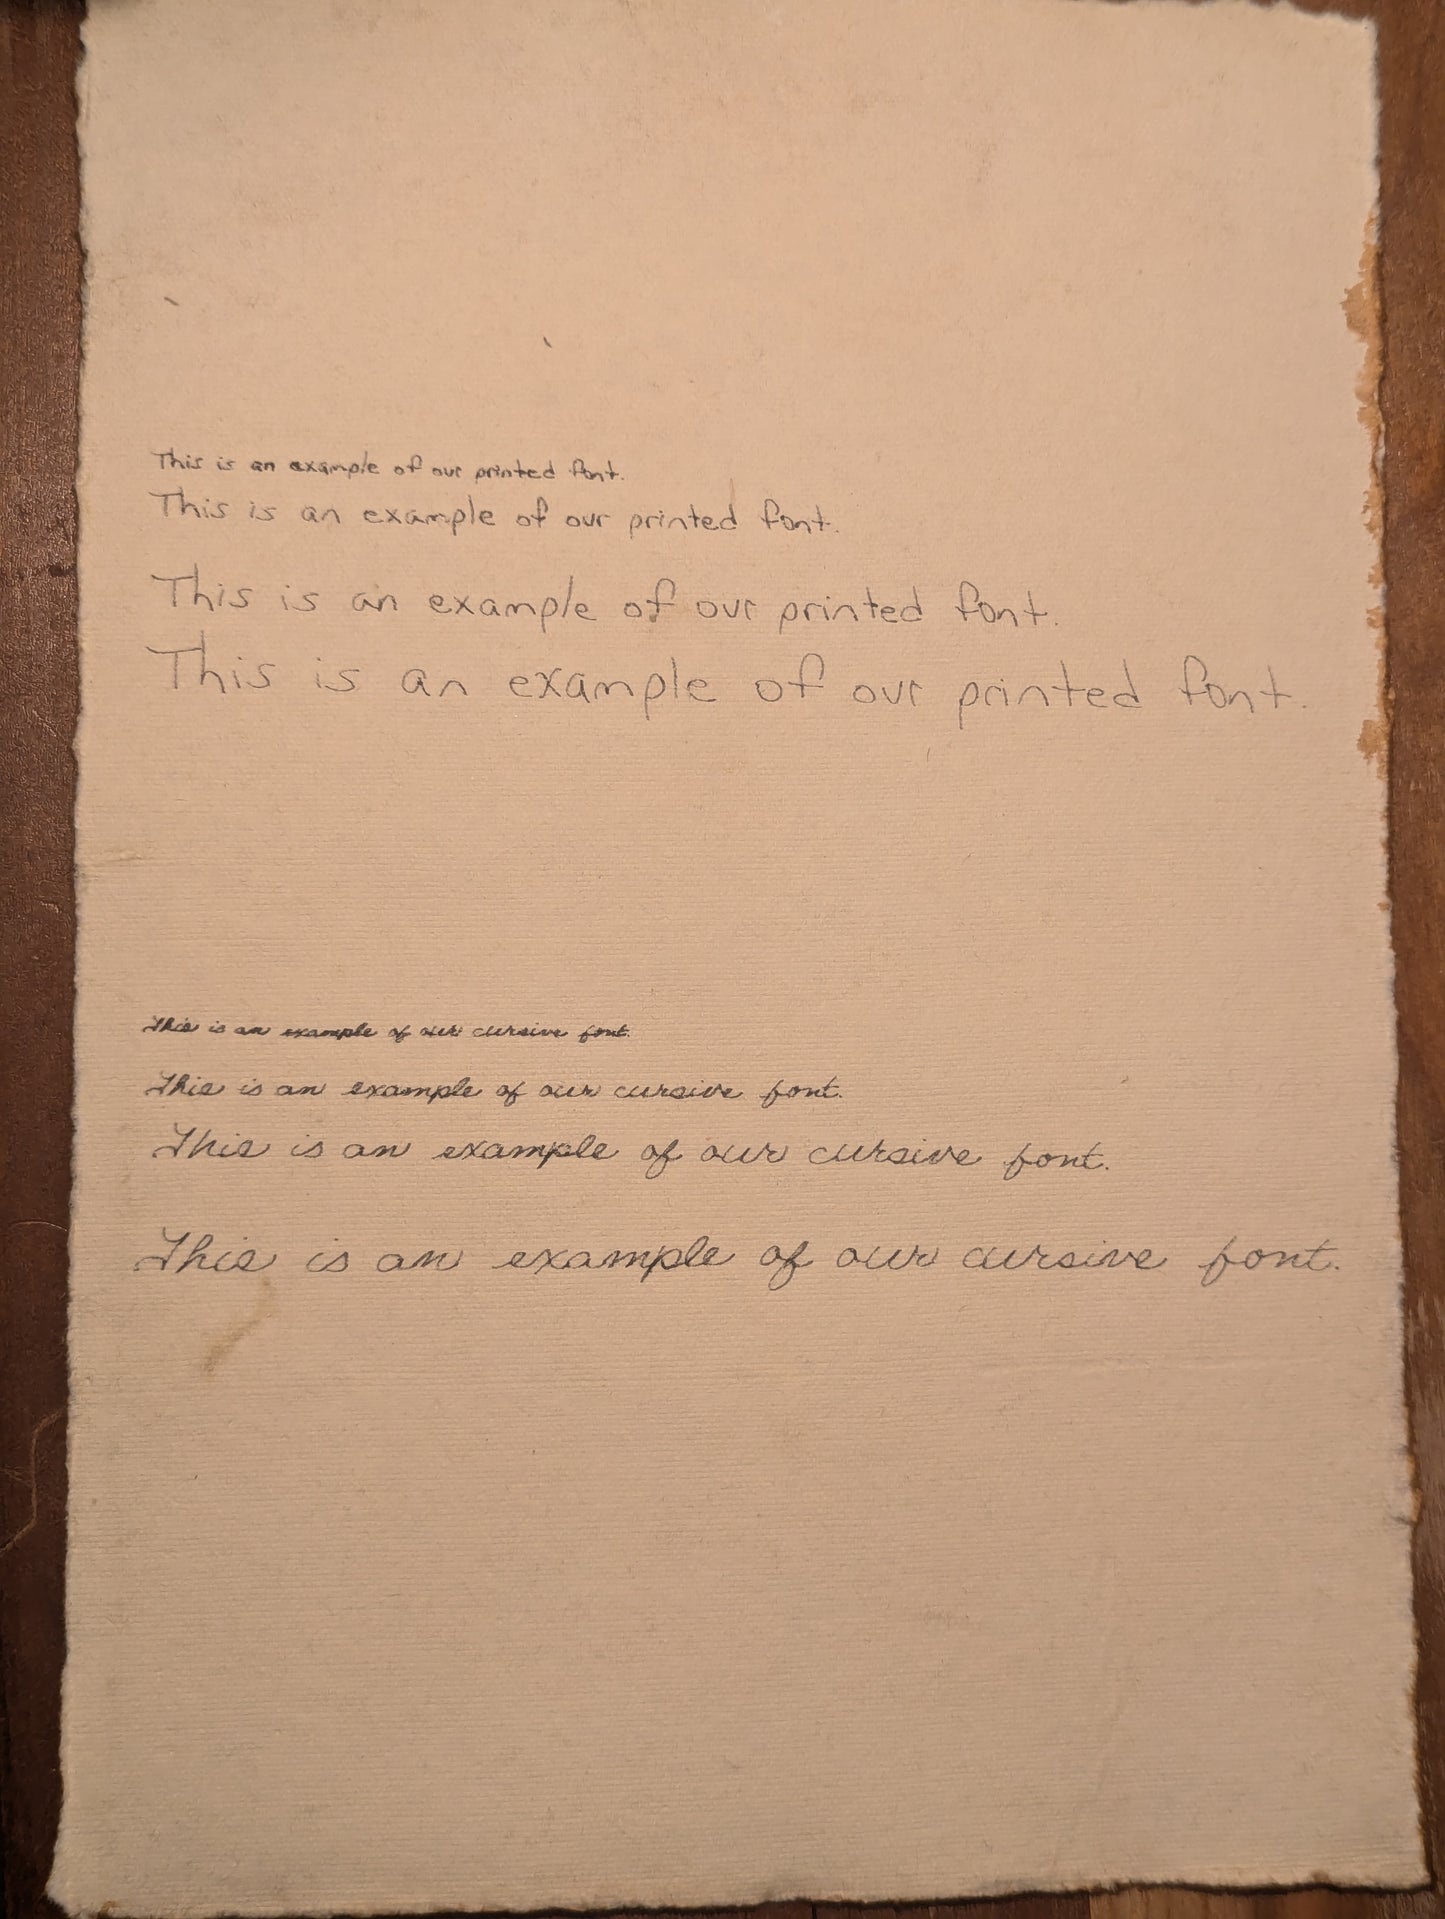 This is an example of our printed font.
This is an example of our printed font.
This is an example of our printed font.
This is an example of our printed font.
This is an example of our cursive font.
This is an example of our cursive font.
This is an example of our cursive font.
This is an example of our cursive font.